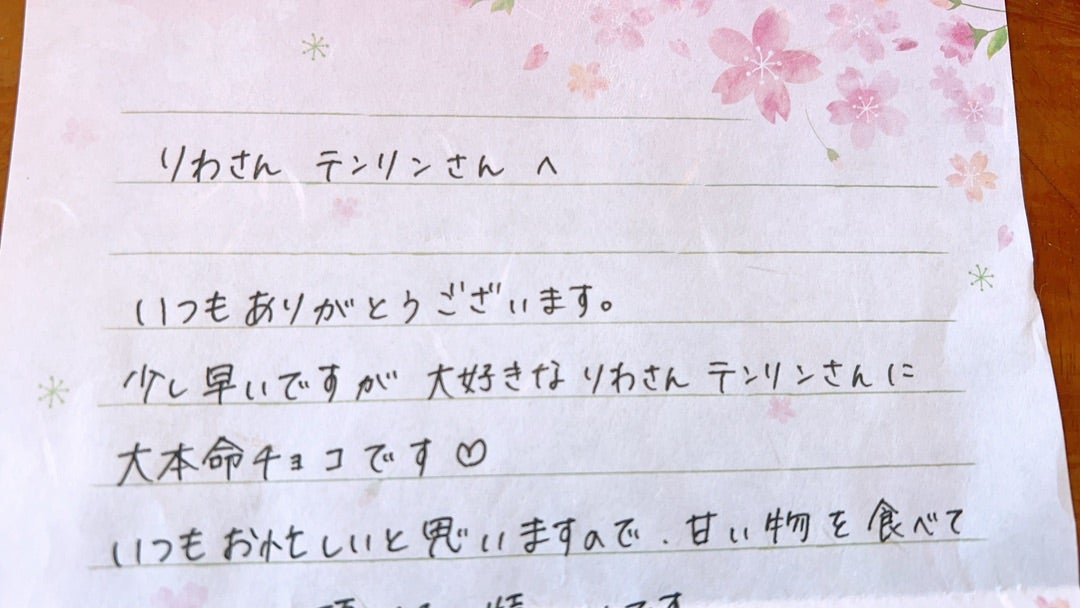 りわさん テンリンさん へ
いつもありがとうございます。
少し早いですが 大好きな りわさん テンリンさんに
大本命チョコです♡
いつもお忙しいと思いますので、甘い物を食べて